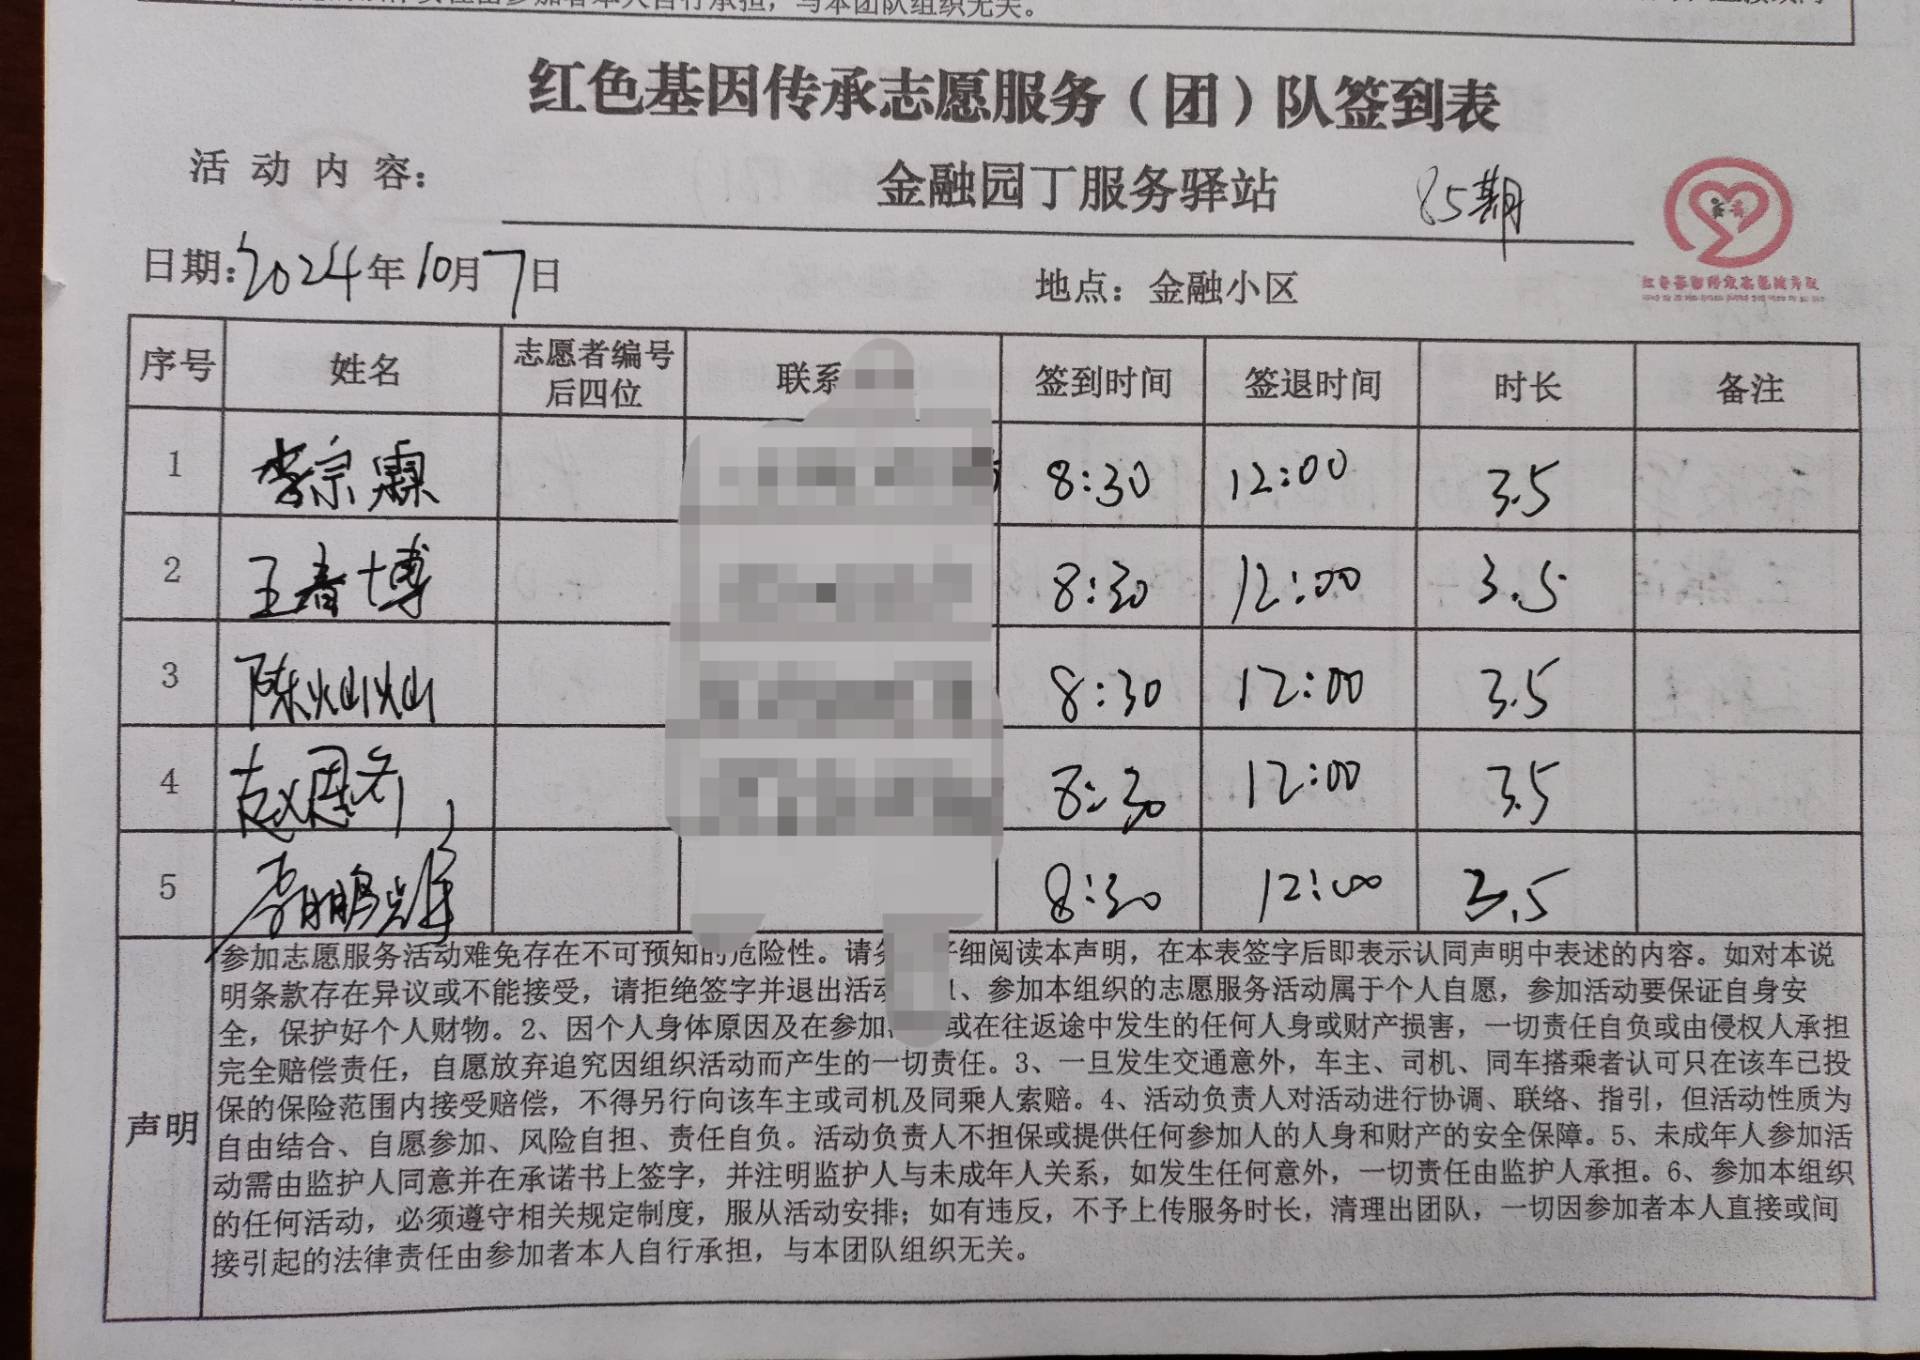 与本团队组织无关。
红色基因传承志愿服务（团）队签到表
活动内容：
金融园丁服务驿站 85期
日期：2024年10月7日 地点：金融小区
序号 姓名 志愿者编号后四位 联系 签到时间 签退时间 时长 备注
1 李宗霖 8:30 12:00 3.5
2 王春博 8:30 12:00 3.5
3 陈灿灿 8:30 12:00 3.5
4 8:30 12:00 3.5
5 李鹏辉 8:30 12:00 3.5
声明
参加志愿服务活动难免存在不可预知的危险性。请务 仔细阅读本声明，在本表签字后即表示认同声明中表述的内容。如对本说
明条款存在异议或不能接受，请拒绝签字并退出活动 1、参加本组织的志愿服务活动属于个人自愿，参加活动要保证自身安
全，保护好个人财物。2、因个人身体原因及在参加 或在往返途中发生的任何人身或财产损害，一切责任自负或由侵权人承担
完全赔偿责任，自愿放弃追究因组织活动而产生的一切责任。3、一旦发生交通意外，车主、司机、同车搭乘者认可只在该车已投
保的保险范围内接受赔偿，不得另行向该车主或司机及同乘人索赔。4、活动负责人对活动进行协调、联络、指引，但活动性质为
自由结合、自愿参加、风险自担、责任自负。活动负责人不担保或提供任何参加人的人身和财产的安全保障。5、未成年人参加活
动需由监护人同意并在承诺书上签字，并注明监护人与未成年人关系，如发生任何意外，一切责任由监护人承担。6、参加本组织
的任何活动，必须遵守相关规定制度，服从活动安排；如有违反，不予上传服务时长，清理出团队，一切因参加者本人直接或间
接引起的法律责任由参加者本人自行承担，与本团队组织无关。